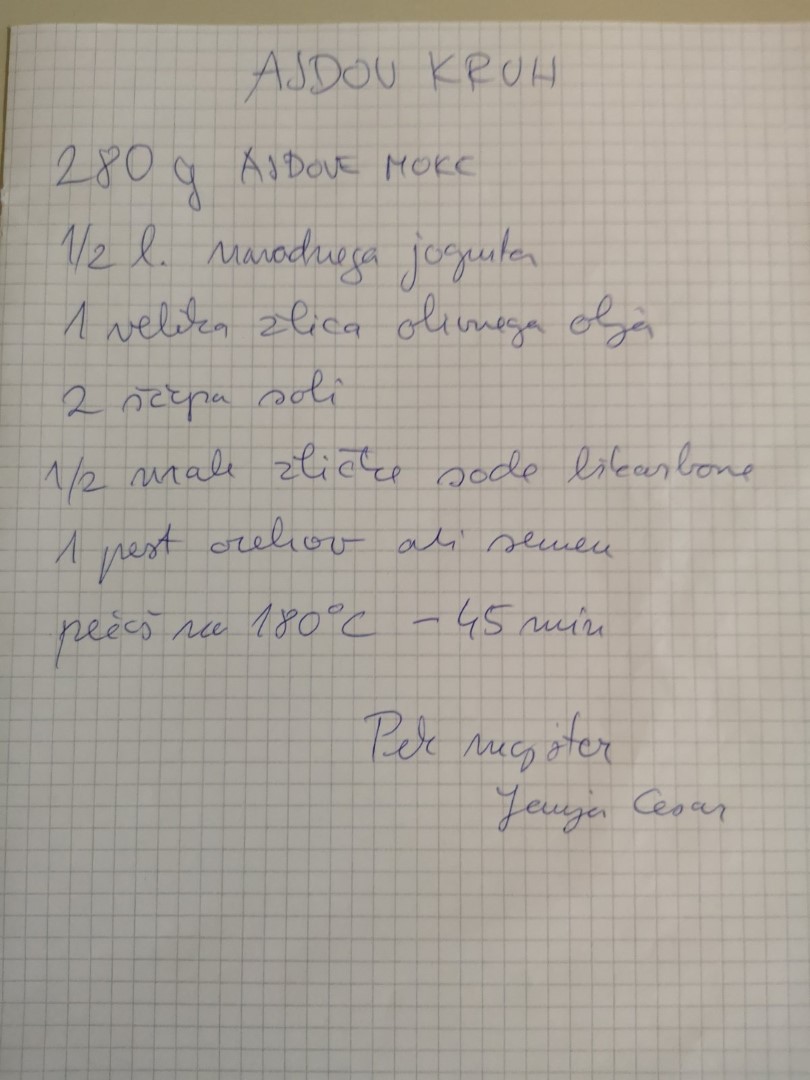 AJDOV KRUH
280 g AJDOVE MOKE
1/2 l. navadnega jogurta
1 velika žlica olivnega olja
2 ščepa soli
1/2 male žličke sode bikarbone
1 pest orehov ali semen
pečeš na 180°C - 45 min
Pek mojster
Cesar